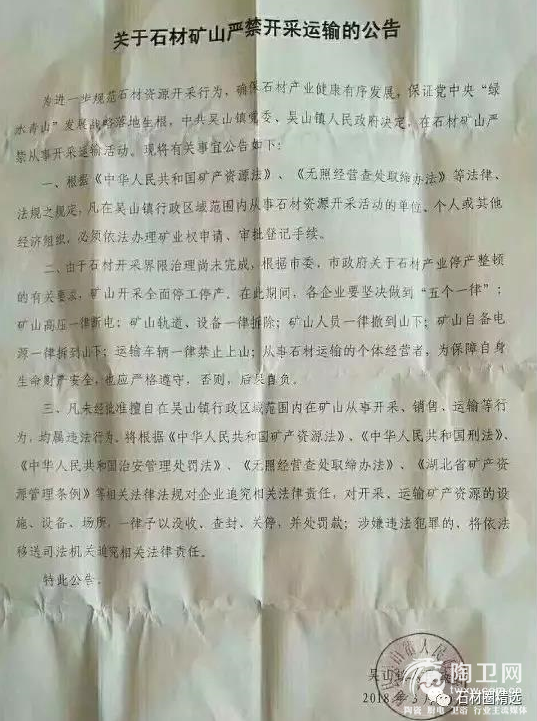 关于石材矿山严禁开采运输的公告
为进一步规范石材资源开采行为，确保石材产业健康有序发展，保证党中央“绿
水青山”发展战略落地生根，中共吴山镇党委、吴山镇人民政府决定，在石材矿山严
禁从事开采运输活动。现将有关事宜公告如下：
一、根据《中华人民共和国矿产资源法》、《无照经营查处取缔办法》等法律、
法规之规定，凡在吴山镇行政区域范围内从事石材资源开采活动的单位、个人或其他
经济组织，必须依法办理矿业权申请、审批登记手续。
二、由于石材开采界限治理尚未完成，根据市委，市政府关于石材产业停产整顿
的有关要求，矿山开采全面停工停产。在此期间，各企业要坚决做到“五个一律”：
矿山高压一律断电；矿山轨道、设备一律拆除；矿山人员一律撤到山下；矿山自备电
源一律拆到山下；运输车辆一律禁止上山；从事石材运输的个体经营者，为保障自身
生命财产安全，也应严格遵守，否则，后果自负。
三、凡未经批准擅自在吴山镇行政区域范围内在矿山从事开采、销售、运输等行
为，均属违法行为，将根据《中华人民共和国矿产资源法》、《中华人民共和国刑法》、
《中华人民共和国治安管理处罚法》、《无照经营查处取缔办法》、《湖北省矿产资
源管理条例》等相关法律法规对企业追究相关法律责任，对开采、运输矿产资源的设
施、设备、场所，一律予以没收、查封、关停，并处罚款；涉嫌违法犯罪的，将依法
移送司法机关追究相关法律责任。
特此公告。
吴山镇
2018年3月
陶卫网
石材圈精选
陶瓷 厨电 卫浴 行业主流媒体